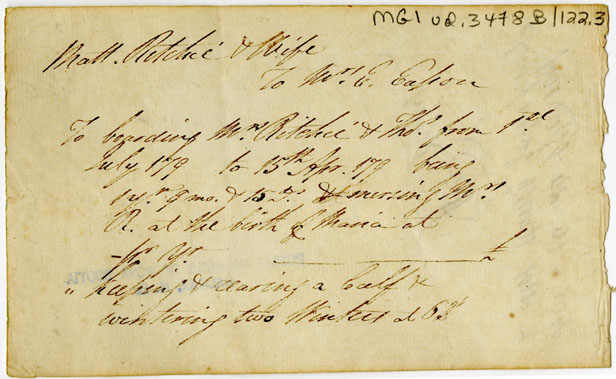 MG1 vol. 3478 B/122.3
Matt. Ritchie & Wife
To Mrs E. Easson
To boarding Mrs Ritchie & Tho.s from 1st
July 179 to 15th Apr. 179 being
yr. 9 mo. & 15 Ds. & nursing Mrs
R. at the birth of Maria at
pr yr £
" Keeping & rearing a Calf &
wintering two Winters at